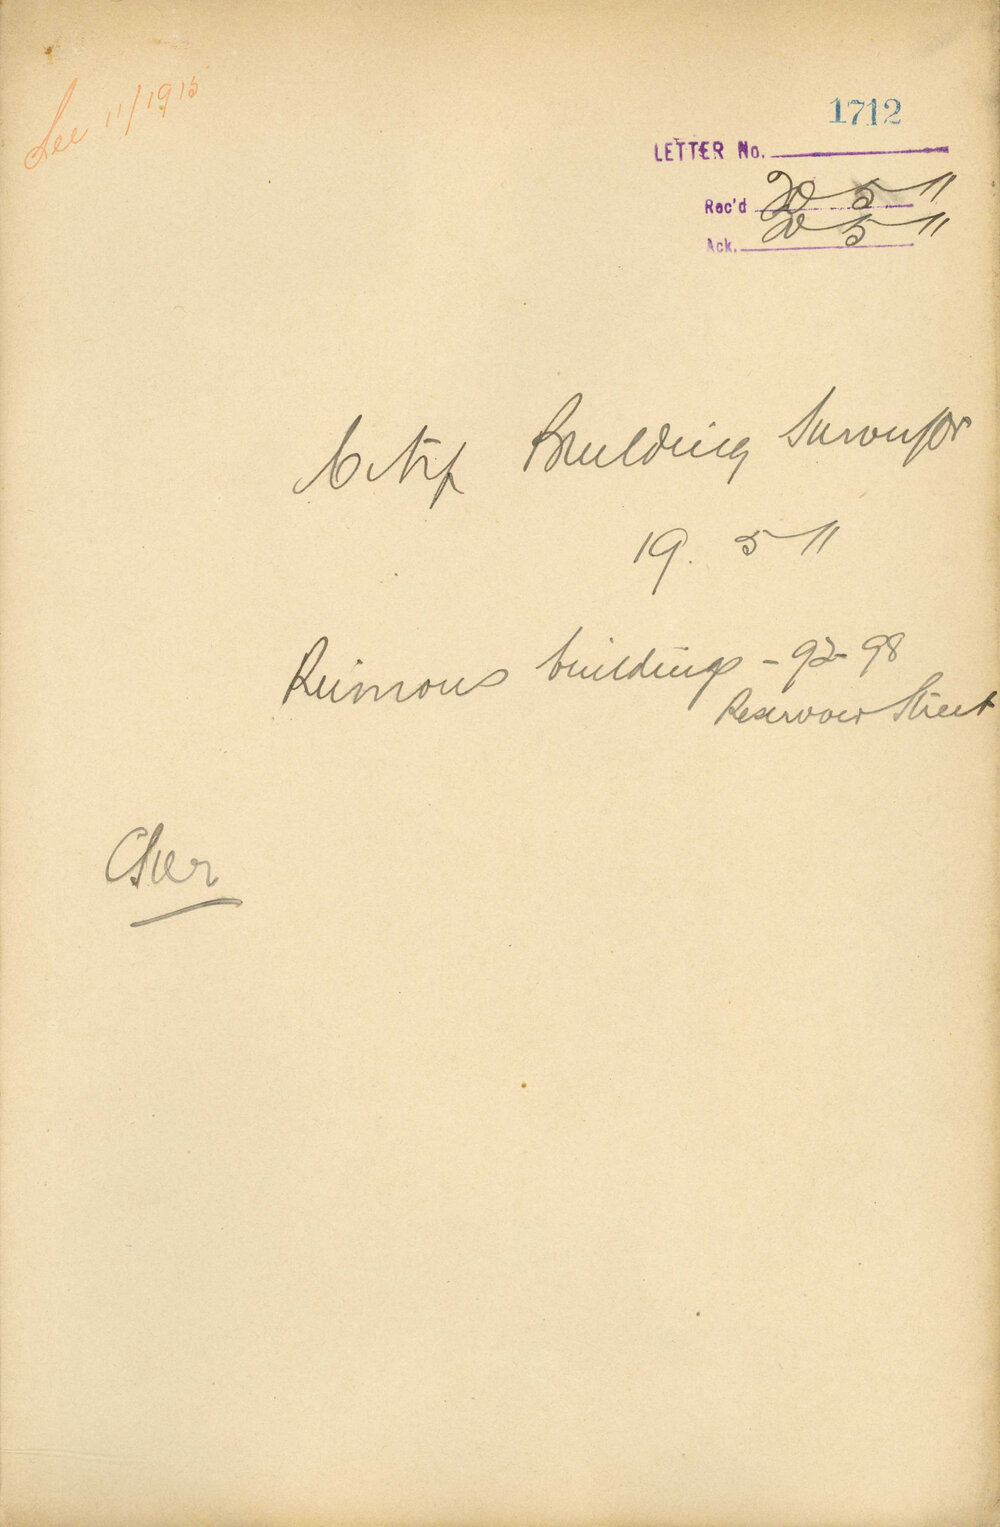 See 11/1915
1712
LETTER No.
Rec'd 20 5 11
Ack. 20 5 11
City Building Surveyor
19. 5 11
Ruinous buildings - 92-98
Reservoir Street